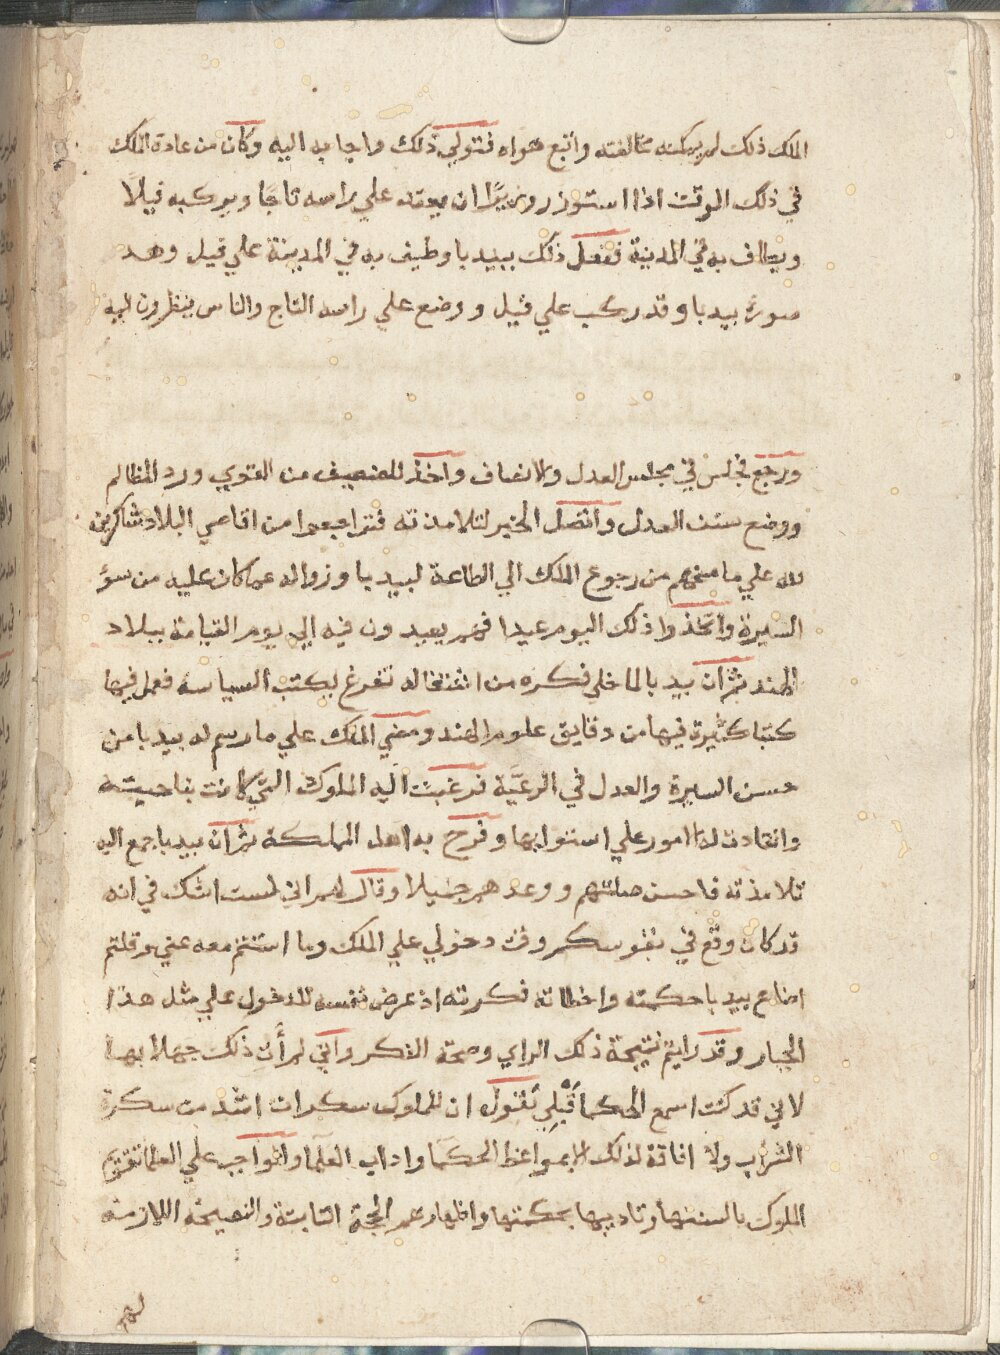 الملك ذلك لم يمكنه مخالفته واتبع هواه فتولي ذلك واجابه اليه وكان من عادة الملك
في ذلك الوقت اذا استوزر وزيرًا ان يعقد علي راسه تاجًا ويركبه فيلاً
ويطاف به في المدينة ففعل ذلك ببيدبا وطيف به في المدينة علي فيل وهد
صورة بيدبا وقد ركب علي فيل ووضع علي راسه التاج والناس ينظرون اليه
ورجع فجلس في مجلس العدل والانصاف واخذ للضعيف من القوي ورد المظالم
ووضع سنن العدل واتصل الخبر لتلامذته فتراجعوا من اقاصي البلاد شاكرين
لله علي ما منحهم من رجوع الملك الي الطاعة لبيدبا وزواله عما كان عليه من سوء
السيرة واتخذوا ذلك اليوم عيدا فهم يعيدون فيه الي يوم القيامة ببلاد
الهند ثم ان بيدبا لما خلي فكره من اشتغاله تفرغ لكتب السياسه فعمل فيها
كتبا كثيرة فيها من دقايق علوم الهند ومضي الملك علي ما رسم له بيدبا من
حسن السيرة والعدل في الرعيَّة فرغبت اليه الملوك التي كانت بناحيته
وانقادت له الامور علي استوايها وفرح به اهل المملكة ثم ان بيدبا جمع اليه
تلامذته فاحسن صلتهم ووعدهم جميلا وقال لهم اني لست اشك في انه
قد كان وقع في نفوسكم وقت دخولي علي الملك وما استتم معه عني وقلتم
اضاع بيدبا حكمته واخطاته فكرته اذ عرض نفسه للدخول علي مثل هذا
الجبار وقد رايتم نتيجة ذلك الراي وصحة الفكر واني لم أَت ذلك جهلا بها
لاني قد كنت اسمع الحكما قَبْلِي تقول ان للملوك سكرات اشد من سكرة
الشراب ولا افاقة لذلك الا بمواعظ الحكَمَا واداب العلَمَا والواجب علي العلما تقويم
الملوك بالسنتها وتاديبها بحكمتها واظهارهم الحجة الثابتة والنصيحة اللازمه